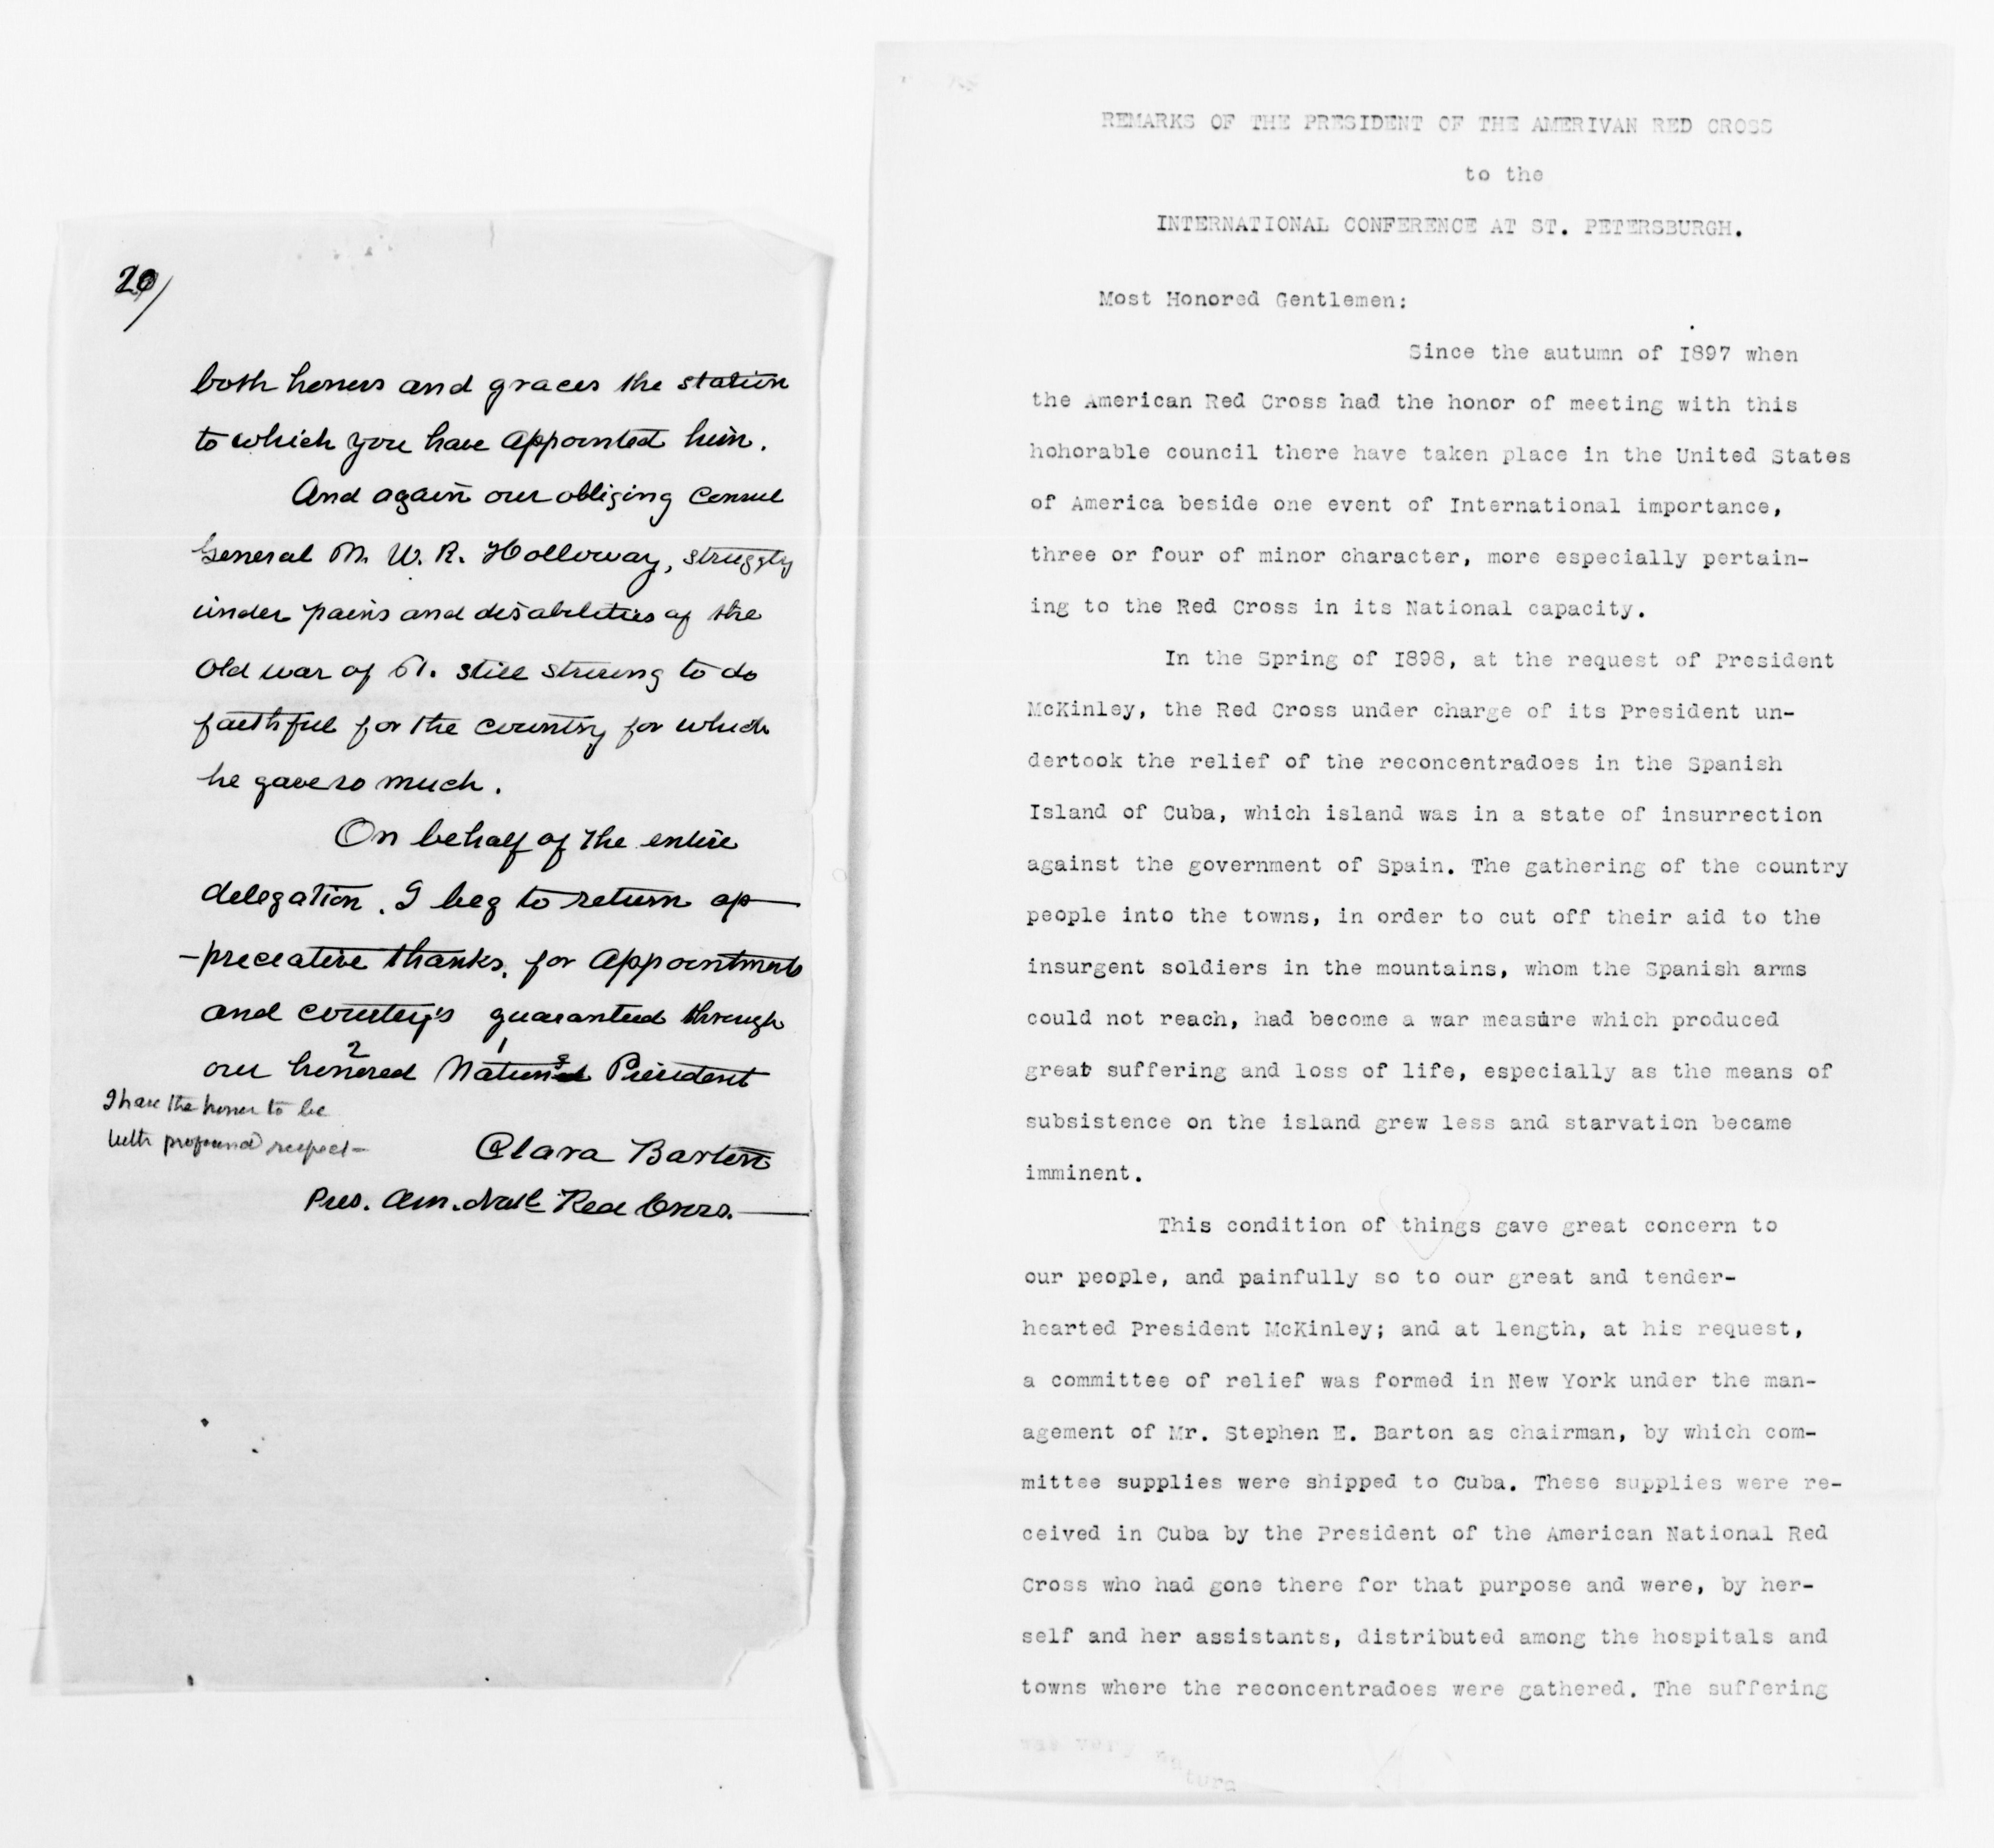 20/
both honors and graces the station
to which you have appointed him.
And again our obliging Consul
General M. W. R. Holloway, struggly
under pains and disabilities of the
Old war of 61. still striving to do
faithful for the country for which
he gave so much.
On behalf of the entire
delegation. I beg to return ap-
-preceative thanks, for appointments
and courtesys guaranteed through
2 1
our honored National President
I have the honor to be
with profound respect-
Clara Barton
Pres. Am. Natl Red Cross.
REMARKS OF THE PRESIDENT OF THE AMERIVAN RED CROSS
to the
INTERNATIONAL CONFERENCE AT ST. PETERSBURGH.
Most Honored Gentlemen:
Since the autumn of I897 when
the American Red Cross had the honor of meeting with this
hohorable council there have taken place in the United States
of America beside one event of International importance,
three or four of minor character, more especially pertain-
ing to the Red Cross in its National capacity.
In the Spring of I898, at the request of President
McKinley, the Red Cross under charge of its President un-
dertook the relief of the reconcentradoes in the Spanish
Island of Cuba, which island was in a state of insurrection
against the government of Spain. The gathering of the country
people into the towns, in order to cut off their aid to the
insurgent soldiers in the mountains, whom the Spanish arms
could not reach, had become a war measure which produced
great suffering and loss of life, especially as the means of
subsistence on the island grew less and starvation became
imminent.
This condition of things gave great concern to
our people, and painfully so to our great and tender-
hearted President McKinley; and at length, at his request,
a committee of relief was formed in New York under the man-
agement of Mr. Stephen E. Barton as chairman, by which com-
mittee supplies were shipped to Cuba. These supplies were re-
ceived in Cuba by the President of the American National Red
Cross who had gone there for that purpose and were, by her-
self and her assistants, distributed among the hospitals and
towns where the reconcentradoes were gathered. The suffering
was very